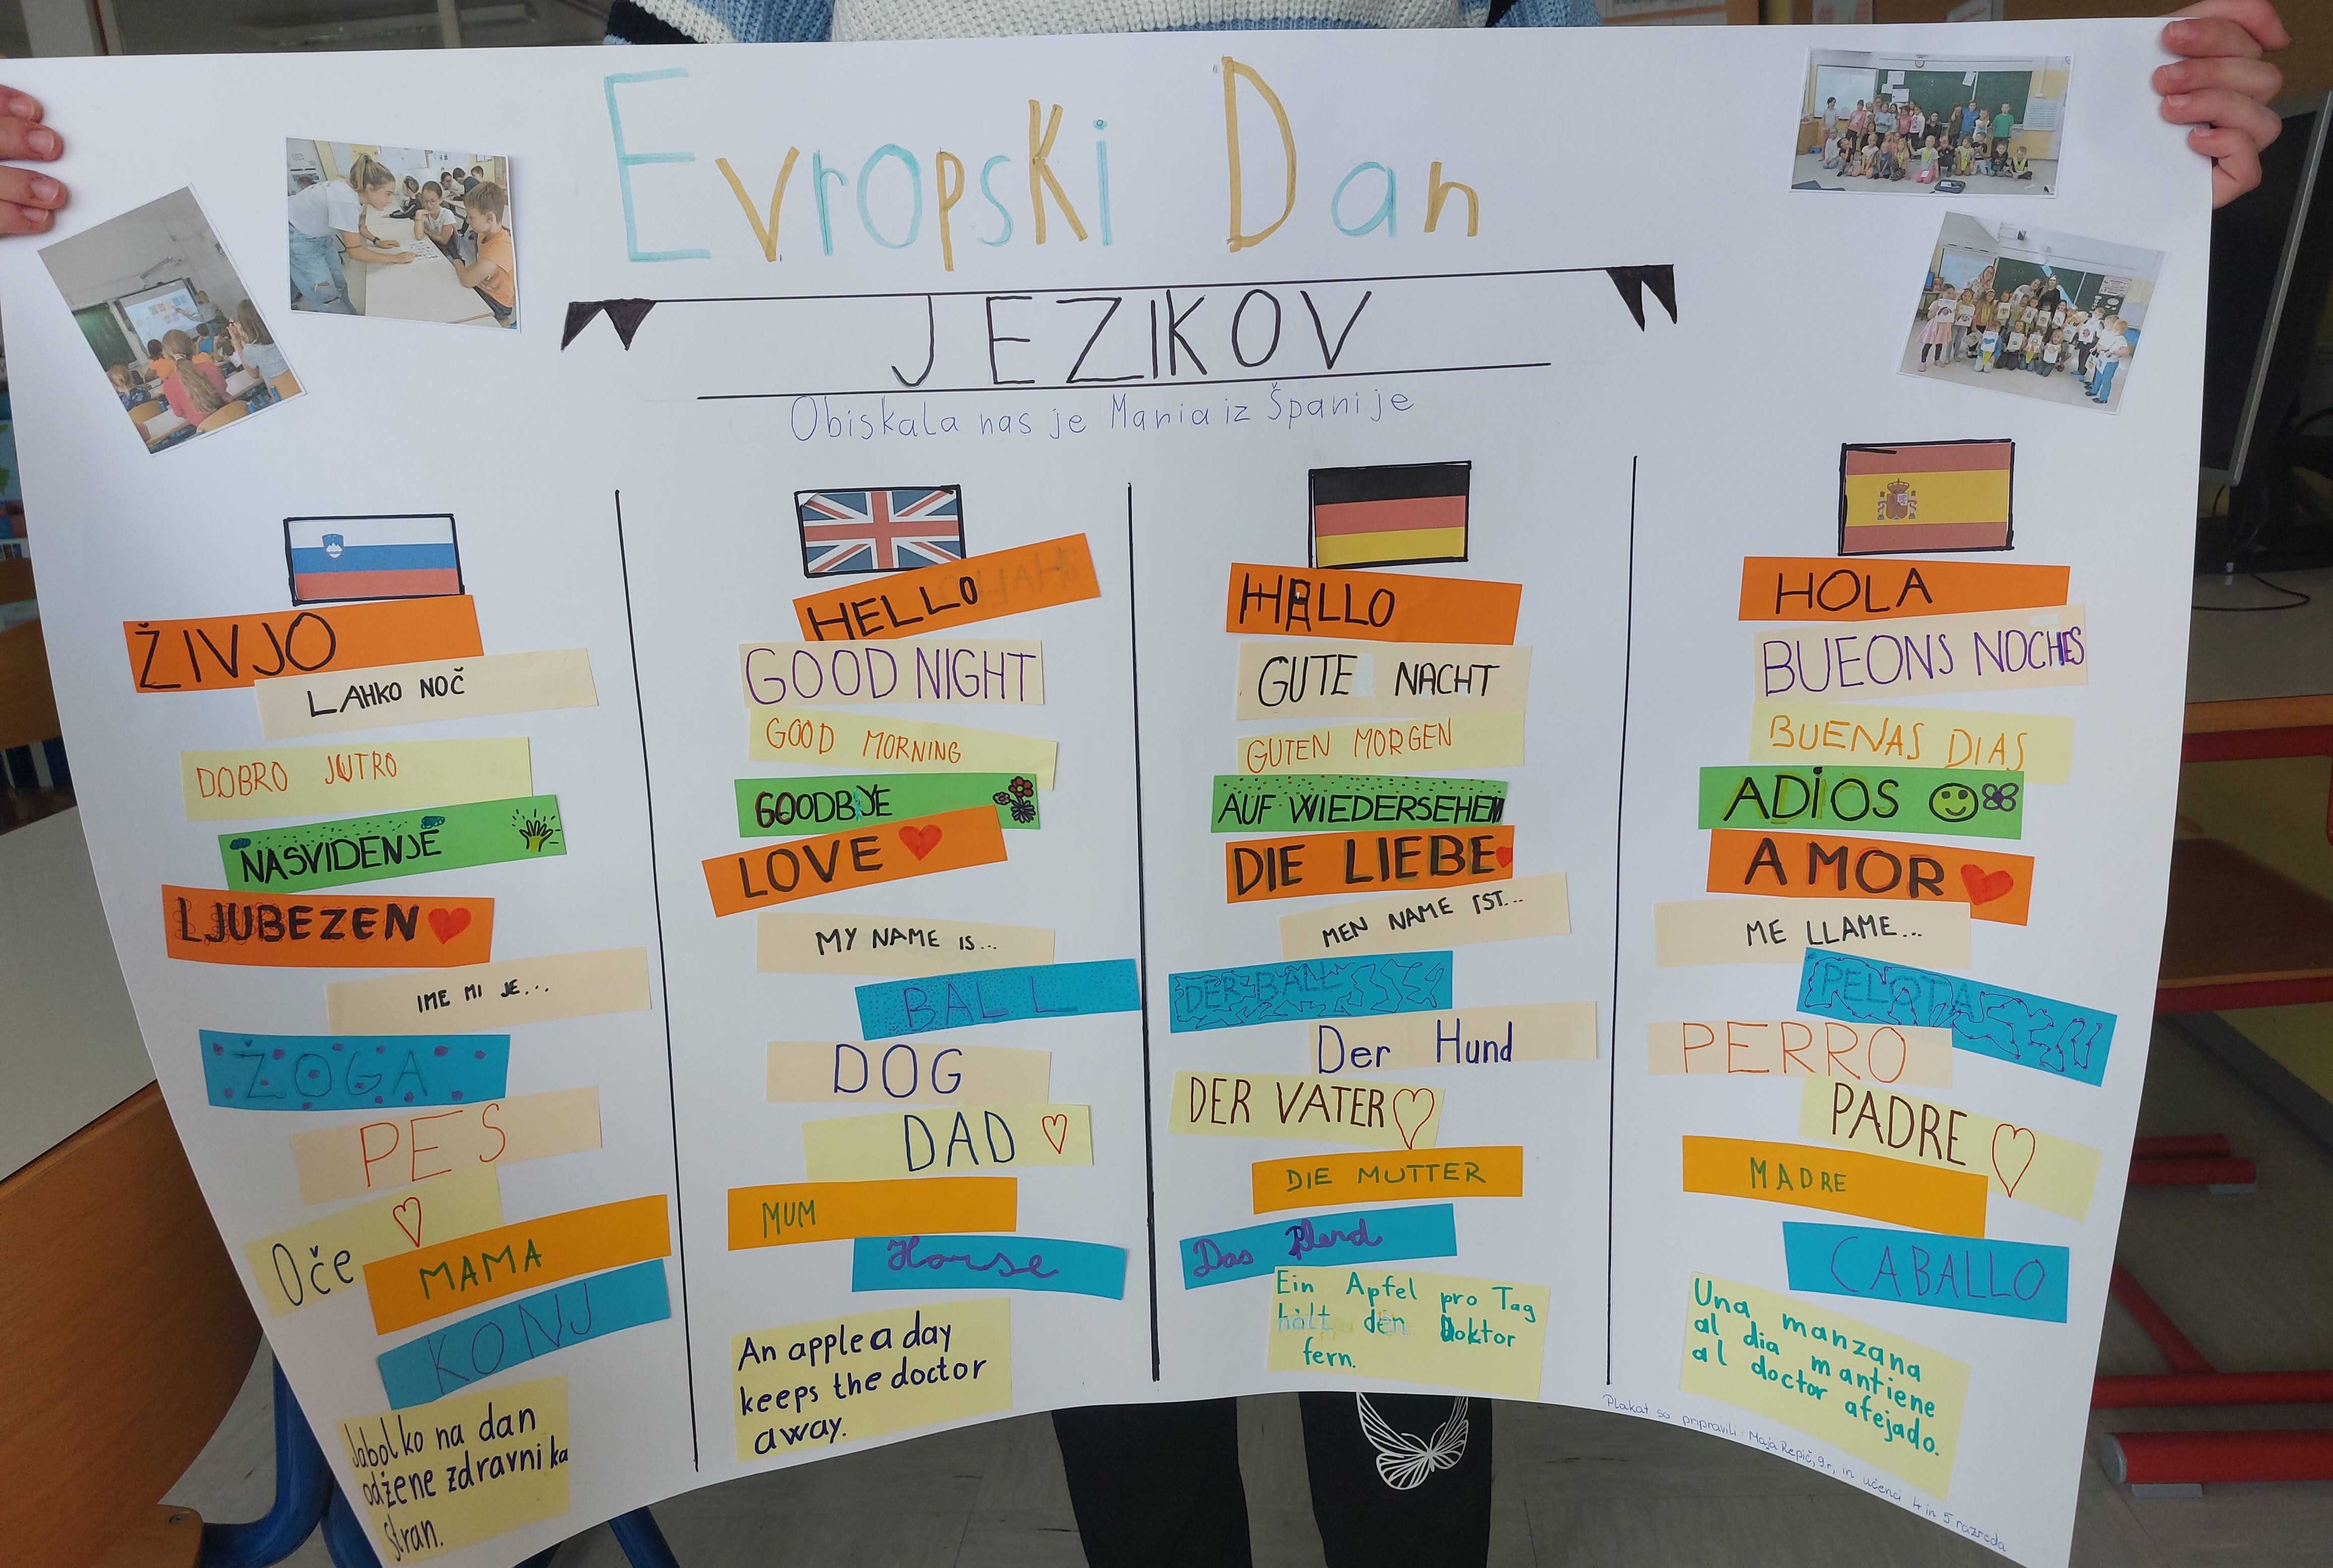 Evropski Dan
JEZIKOV
Obiskala nas je Maria iz Španije
ŽIVJO
LAHKO NOČ
DOBRO JUTRO
NASVIDENJE
LJUBEZEN
IME MI JE...
ŽOGA
PES
Oče
MAMA
KONJ
Jabolko na dan
odžene zdravnika
stran.
HELLO
GOOD NIGHT
GOOD MORNING
GOODBYE
LOVE
MY NAME IS...
BALL
DOG
DAD
MUM
Horse
An apple a day
keeps the doctor
away.
HALLO
GUTE NACHT
GUTEN MORGEN
AUF WIEDERSEHEN
DIE LIEBE
MEN NAME IST...
DER BALL
Der Hund
DER VATER
DIE MUTTER
Das Pferd
Ein Apfel pro Tag
hält den Doktor
fern.
HOLA
BUEONS NOCHES
BUENAS DIAS
ADIOS
AMOR
ME LLAME...
PELOTA
PERRO
PADRE
MADRE
CABALLO
Una manzana
al dia mantiene
al doctor afejado.
Plakat so pripravili: Maja Repič, 9.r, in učenci 4 in 5 razreda